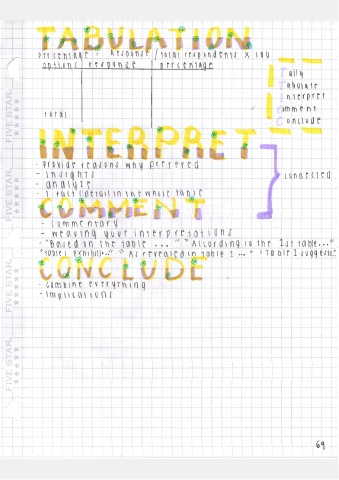 TABULATION
percentage = Response / total respondents x 100
options response percentage
total
Tally
Tabulate
Interpret
Comment
Conclude
INTERPRET
- provide reasons why preferred
- insights
- analyze
- 1 fact/detail in the whole table
connected
COMMENT
- commentary
- weaving your interpretations
- "Based on the table ..." "According to the 1st table..."
"Table 1 exhibits..." "As revealed in table 1 ..." "Table 1 suggests.."
CONCLUDE
- combine everything
- implications
FIVE STAR.
FIVE STAR.
FIVE STAR.
FIVE STAR.
69